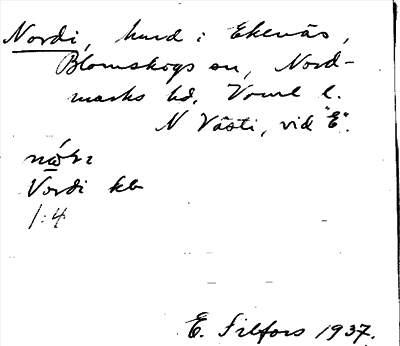 Nordi, hund i Ekenäs,
Blomskogs sn, Nord-
marks hd, Vrml l.
N Västi, vid "E".
Vordi kb
1:4
E. Filfors 1937.